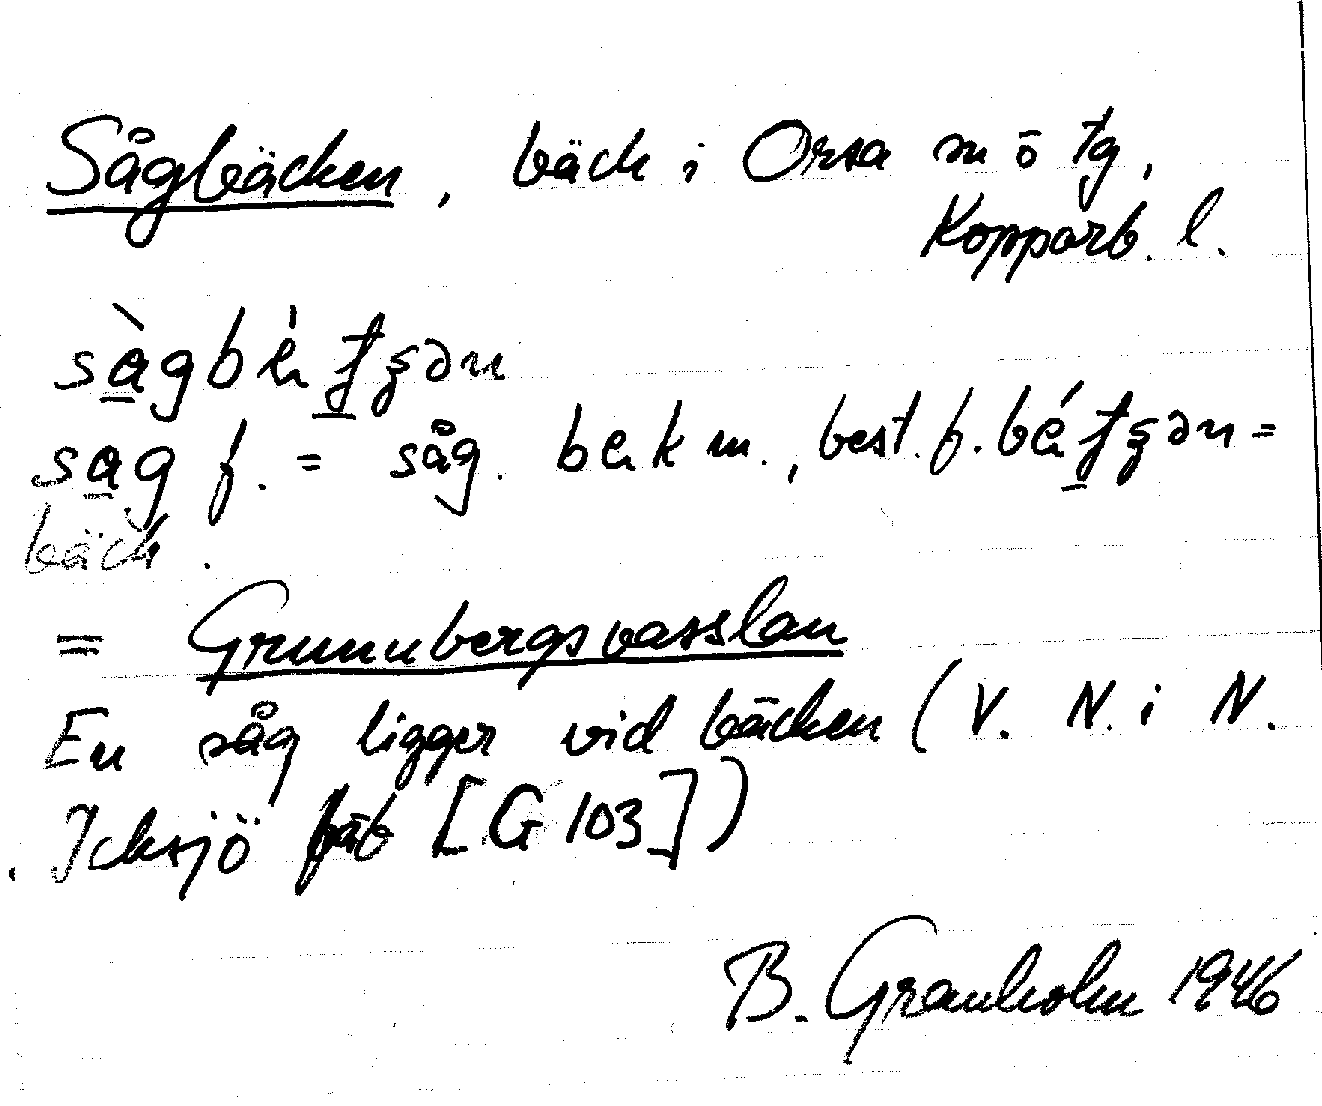 Sågbäcken, bäck i Orsa sn o tg,
Kopparb. l.
f. = såg. m., best. f.
bäck.
= Grunnbergsvasslan
En såg ligger vid bäcken (V. N. i N.
Icksjö fäb [G 103])
B. Granholm 1946